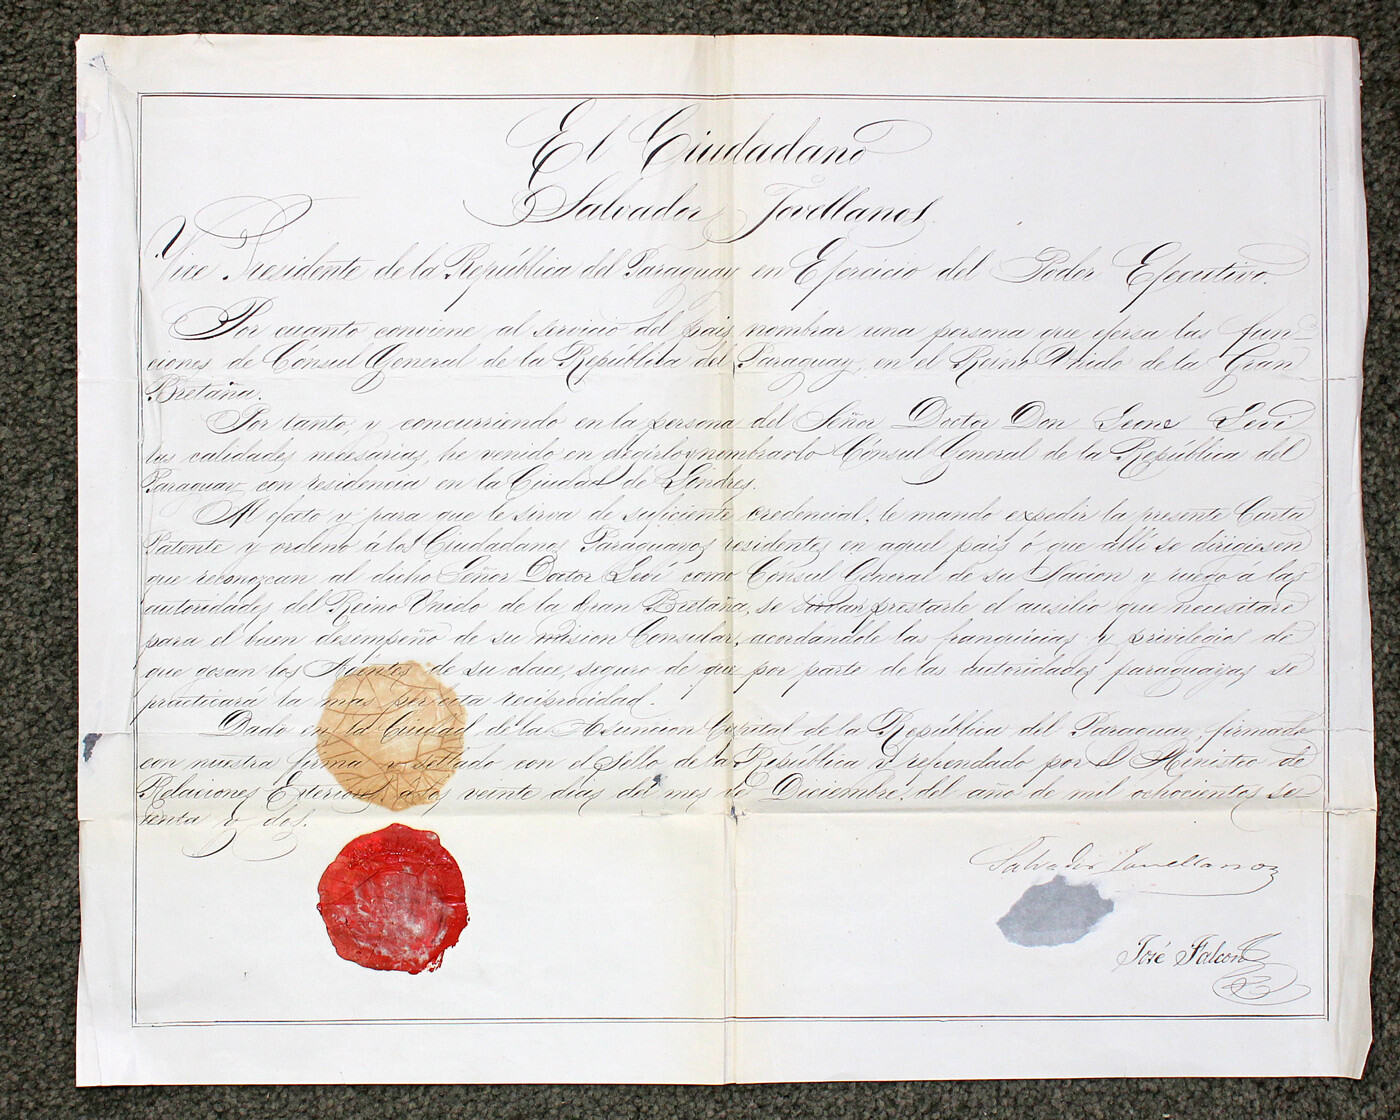 El Ciudadano
Salvador Jovellanos
Vice Presidente de la República del Paraguay en Ejercicio del Poder Ejecutivo.
Por cuanto conviene al servicio del país nombrar una persona que ejersa las fun-
ciones de Cónsul General de la República del Paraguay, en el Reino Unido de la Gran
Bretaña.
Por tanto, y concurriendo en la persona del Señor Doctor Don Leone Levi
las calidades necesarias, he venido en elegirlo y nombrarlo Cónsul General de la República del
Paraguay con residencia en la Ciudad de Lóndres.
Al efecto y para que le sirva de suficiente credencial, le mando expedir la presente Carta
Patente y ordeno á los Ciudadanos Paraguayos residentes en aquel país ó que allí se dirigiesen
que reconozcan al dicho Señor Doctor Levi como Cónsul General de su Nacion y ruego á las
autoridades del Reino Unido de la Gran Bretaña, se sirvan prestarle el ausilio que necesitare
para el buen desempeño de su mision Consular, acordándole las franquicias y privilegios de
que gozan los Agentes de su clase, seguro de que por parte de las autoridades paraguayas se
practicará la mas perfecta reciprocidad.
Dado en la Ciudad de la Asuncion Capital de la República del Paraguay, firmado
con nuestra firma y sellado con el Sello de la República y refrendado por el Ministro de
Relaciones Exteriores, a los veinte dias del mes de Diciembre, del año de mil ochocientos se-
tenta y dos.
Salvador Jovellanos
José Falcon